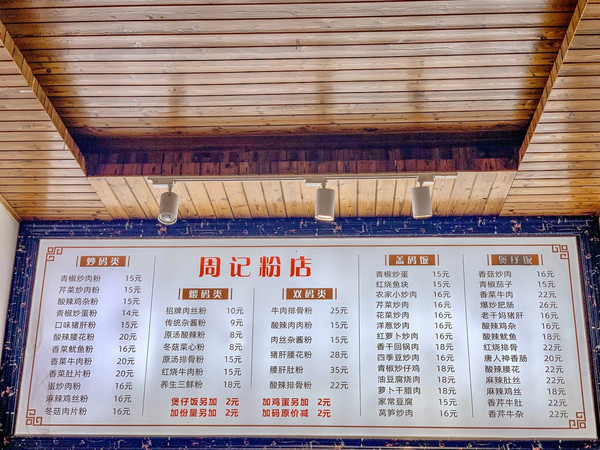 周记粉店
炒码类
青椒炒肉粉 15元
芹菜炒肉粉 15元
酸辣鸡杂粉 15元
青椒炒蛋粉 14元
口味猪肝粉 15元
酸辣腰花粉 20元
香菜鱿鱼粉 16元
香菜牛肉粉 20元
香菜肚片粉 20元
蛋炒肉粉 16元
麻辣鸡丝粉 16元
冬菇肉片粉 16元
煨码类
招牌肉丝粉 10元
传统杂酱粉 9元
原汤酸辣粉 8元
冬菇菜心粉 8元
原汤排骨粉 15元
红烧牛肉粉 15元
养生三鲜粉 18元
煲仔饭另加 2元
加份量另加 2元
双码类
牛肉排骨粉 25元
酸辣肉肉粉 15元
肉丝杂酱粉 15元
猪肝腰花粉 28元
腰肝肚粉 35元
酸辣排骨粉 22元
加鸡蛋另加 2元
加码原价减 2元
盖码饭
青椒炒蛋 15元
红烧鱼块 15元
农家小炒肉 16元
芹菜炒肉 16元
花菜炒肉 16元
洋葱炒肉 16元
红萝卜炒肉 16元
香干回锅肉 18元
四季豆炒肉 16元
青椒炒仔鸡 18元
油豆腐烧肉 18元
萝卜干腊肉 18元
家常豆腐 15元
莴笋炒肉 16元
煲仔饭
香菇炒肉 16元
青椒茄子 15元
香菜牛肉 22元
爆炒肥肠 26元
老干妈猪肝 16元
酸辣鸡杂 16元
酸辣鱿鱼 18元
红烧排骨 22元
唐人神香肠 20元
酸辣腰花 22元
麻辣肚丝 22元
麻辣鸡丝 18元
香芹牛肚 22元
香芹牛杂 22元